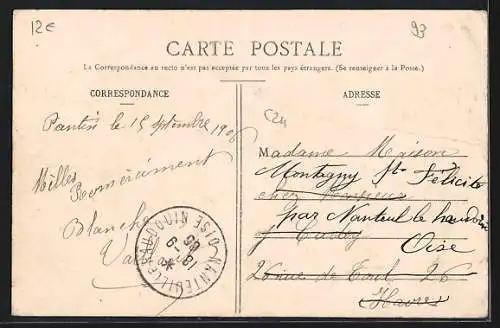 12€
93
CARTE POSTALE
La Correspondance au recto n'est pas acceptée par tous les pays étrangers. (Se renseigner à la Poste.)
CORRESPONDANCE
ADRESSE
C24
Pantin le 15 Septembre 1906
Milles Remerciment
Blanche
Madame Maison
Montagny Ste Félicité
chez Monsieur
par Nanteuil le haudoin
Oise
26 rue de 26
Havre
NANTEUIL-LE-HAUDOUIN OISE
18-9